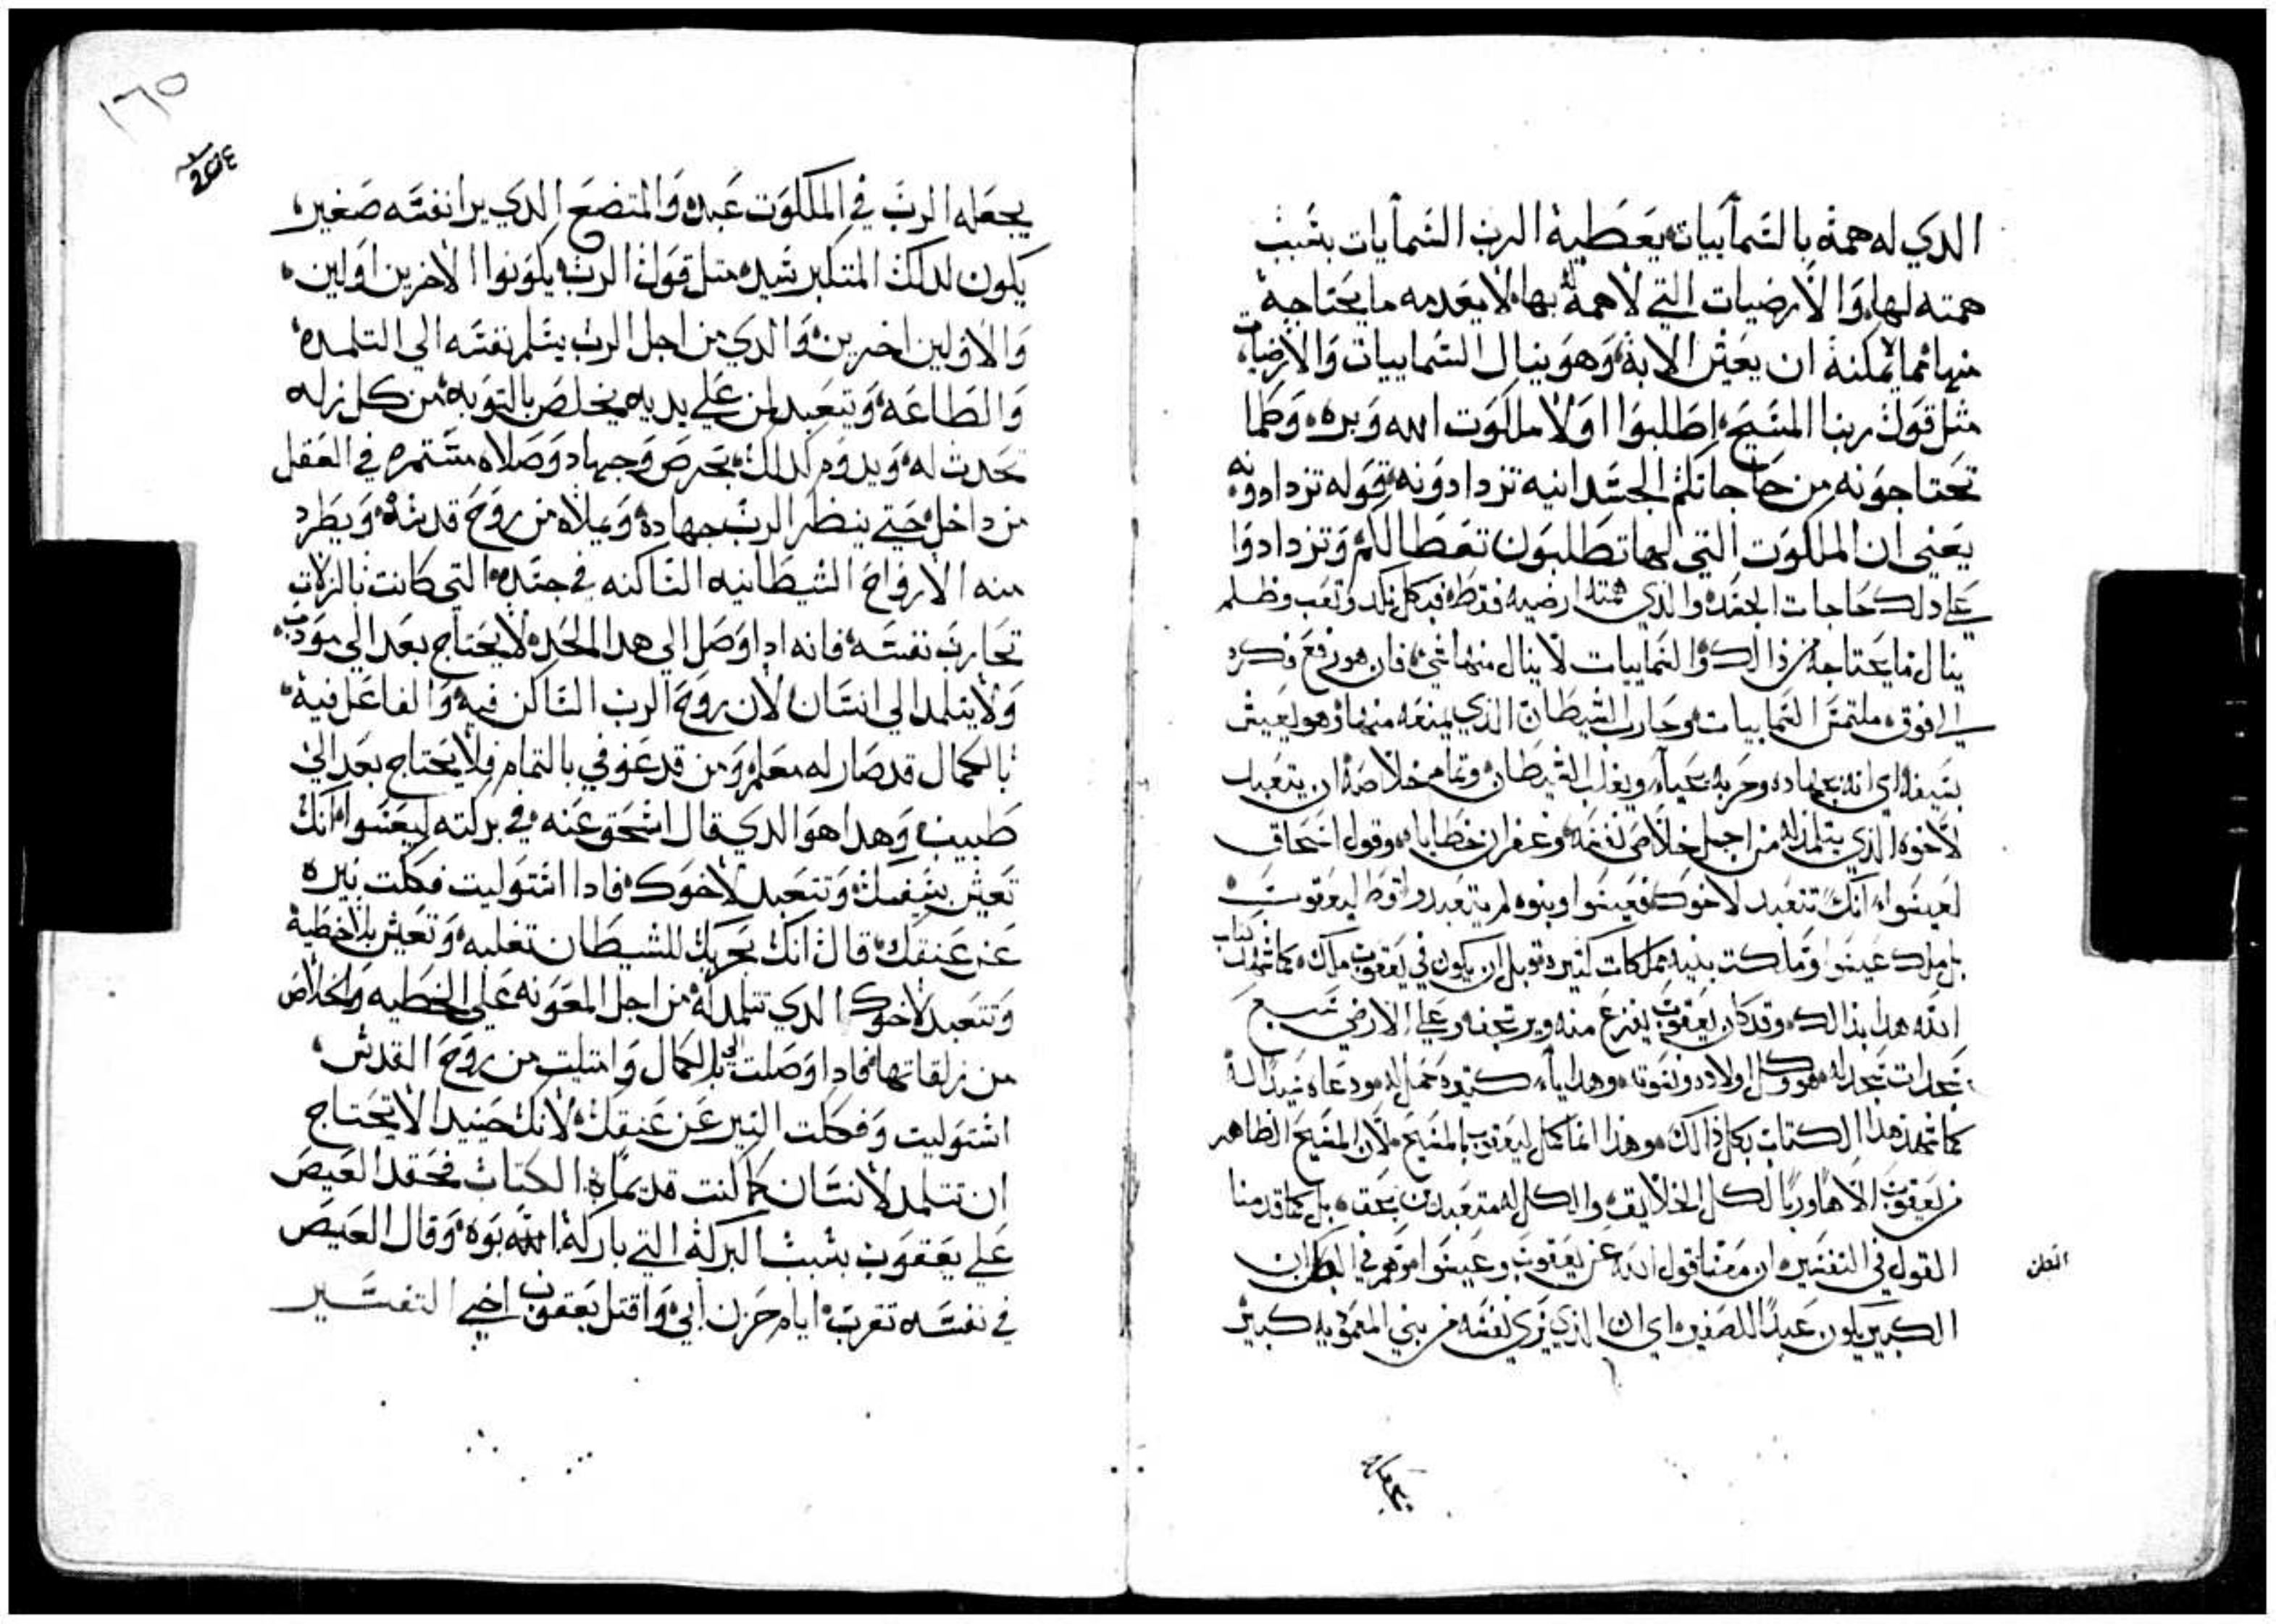 الدي له همة بالسمآييات يعطية الرب السمآيات بسبب
همته لها، والارضيات التي لاهمة بها لا يعدمه ما يحتاجة
منها مما يمكنة ان يعيش الابة وهو ينال السماييات والارضيات
مثل قول ربنا المسيح اطلبوا اولا ملكوت الله وبره، وكلما
تحتاجونه من حاجاتكم الجسدانيه تزدادونه، قوله تزدادونه
يعني ان الملكوت التي لها تطلبون تعطا لكم وتزدادوا
علي دلك حاجات الجسد، والذي همته ارضيه فقط فبكل نكد وتعب وظلم
ينال ما يحتاجه من ذالك والسماييات لا ينال منها شي، فان هو رفع فكره
الي فوق ملتمس السماييات وحارب الشيطان الذي يمنعه منها فهو يعيش
بسيفه اي انه بجهاده وحربه يحيا، ويغلب الشيطان وتمام خلاصه ان يتعبد
لاخوه الذي يتلمد له من اجل خلاص نفسه وغفران خطاياه، وقول اسحاق
لعيسوا، انك تتعبد لاخوك فعيسوا وبنوه لم يتعبدوا قط ليعقوب
بل ملك عيسوا وملكت بنيه مملكات كثيره قبل ان يكون في يعقوب ملك، كما شهد كتاب
الله هدا بذالك، وقد كان يعقوب يفزع منه ويرتجف وعلي الارض سبع
سجدات سجد له هو وكل اولاده ونسوته، وهدايا كتيره حمل له ودعاه سيدًا له
كما شهد هدا الكتاب بكل ذالك، وهذا انما كمل ليعقوب بالمسيح، لان المسيح الظاهر
من يعقوب الاهًا وربًا لكل الخلايق، والكل له متعبدين بحق، بل كما قدمنا
القول في التفسير، ان معنا قول الله عن يعقوب وعيسوا وهم في البطن ان
الكبير يكون عبدًا للصغير، اي ان الذي يري نفسه من بني المعموديه كبير
يجعله
١٦٥
يجعله الرب في الملكوت عبد، والمتضع الدي يرا نفسه صغير،
يكون لدلك المتكبر سيد، متل قول الرب يكونوا الاخرين اولين،
والاولين اخرين، والدي من اجل الرب يسلم نفسه الي التلمده،
والطاعة، ويتعبد لمن علي يديه يخلص بالتوبة من كل زله
تحدت له، ويدوم كدلك بحرص وجهاد وصلاه مستمره في العقل
من داخل حتي ينظر الرب جهاده، ويملاه من روح قدسة، ويطرد
منه الارواح الشيطانيه الساكنه في جسده، التي كانت بالزلات
تحارب نفسه، فانه ادا وصل الي هدا الحد لا يحتاج بعد الي مودب،
ولا يتلمد الي انسان لان روح الرب الساكن فيه والفاعل فية،
بالكمال قد صار له معلم، ومن قد عوفي بالتمام فلا يحتاج بعد الي
طبيب، وهدا هو الدي قال اسحق عنه، في بركته ليعسوا انك
تعيش بسيفك، وتتعبد لاخوك، فادا استوليت فكلت نيره
عن عنقك، قال انك بحربك للشيطان تغلبه، وتعيش بلا خطية
وتتعبد لاخوك الدي تتلمد له من اجل المعونه علي الخطيه والخلاص
من زلقاتها، فادا وصلت الي الكمال وامتليت من روح القدس،
استوليت وفكلت النير عن عنقك، لانك حينيدا لا تحتاج
ان تتلمد لانسان كما كنت قديمًا، الكتاب فحقد العيص
علي يعقوب بسبب البركة التي باركه ابوه، وقال العيص
في نفسه تقرب ايام حزن ابي، واقتل يعقوب اخي التفسير